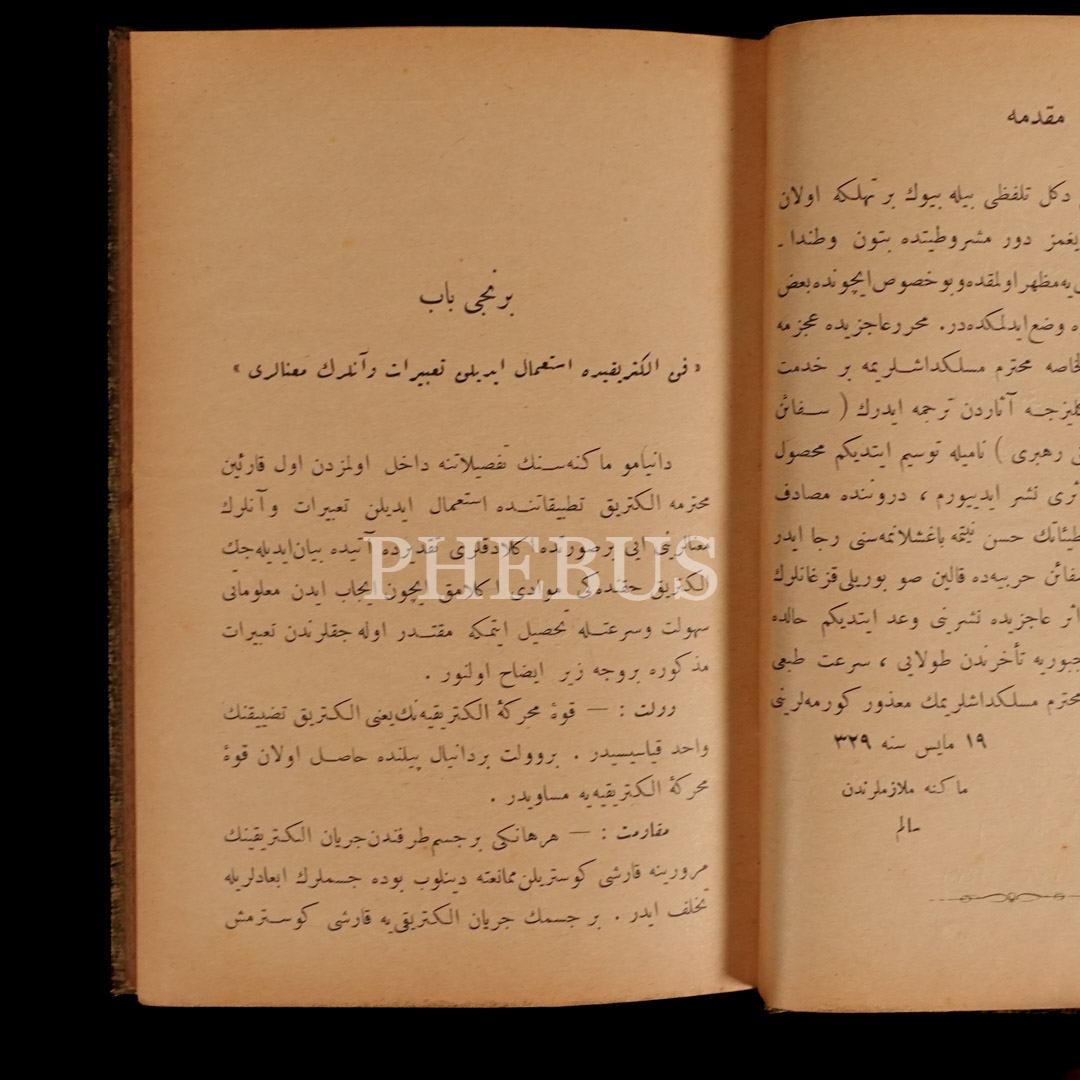 مقدمه
دكل تلفظى بيله بيوك بر تهلكه اولان
يغمز دور مشروطيتده بتون وطندا ـ
يه مظهر اولمقده و بو خصوص ايچونده بعض
ه وضع ايدلمكده در. محرر عاجزيده عجزمه
الخاصه محترم مسلكداشلريمه بر خدمت
كليزجه آثاردن ترجمه ايدرك ( سفائن
رهبرى ) ناميله توسيم ايتديكم محصول
ئرى نشر ايدييورم ، دروننده مصادف
طيئاتك حسن نيتمه باغشلانمه سنى رجا ايدر
سفائن حربيه ده قالين صو بوريلى قزغانلرك
ئر عاجزيده نشرينى وعد ايتديكم حالده
جبوريه تأخرندن طولايى ، سرعت طبعى
محترم مسلكداشلريمك معذور كورمه لرينى
١٩ مايس سنه ٣٢٩
ماكنه ملازملرندن
سالم
برنجى باب
« فن الكتريقيده استعمال ايديلن تعبيرات و آنلرك معنالرى »
دانيامو ماكنه سنك تفصيلاتنه داخل اولمزدن اول قارئين
محترمه الكتريق تطبيقاتنده استعمال ايديلن تعبيرات و آنلرك
معنالرينى ايى بر صورتده اكلادقلرى تقديرده آتيده بيان ايديله جك
الكتريق حقنده كى موادى اكلامق ايچون ايجاب ايدن معلوماتى
سهولت وسرعتله تحصيل ايتمكه مقتدر اوله جقلرندن تعبيرات
مذكوره بروجه زير ايضاح اولنور .
وولت : — قوۀ محركۀ الكتريقيه نك يعنى الكتريق تضييقنك
واحد قياسيسيدر . بر وولت بر دانيال پيلنده حاصل اولان قوۀ
محركۀ الكتريقيه يه مساويدر .
مقاومت : — هر هانكى بر جسم طرفندن جريان الكتريقينك
مرورينه قارشى كوستريلن ممانعته دينلوب بوده جسملرك ابعادلريله
تخلف ايدر . بر جسمك جريان الكتريقى يه قارشى كوسترمش
PHEBUS